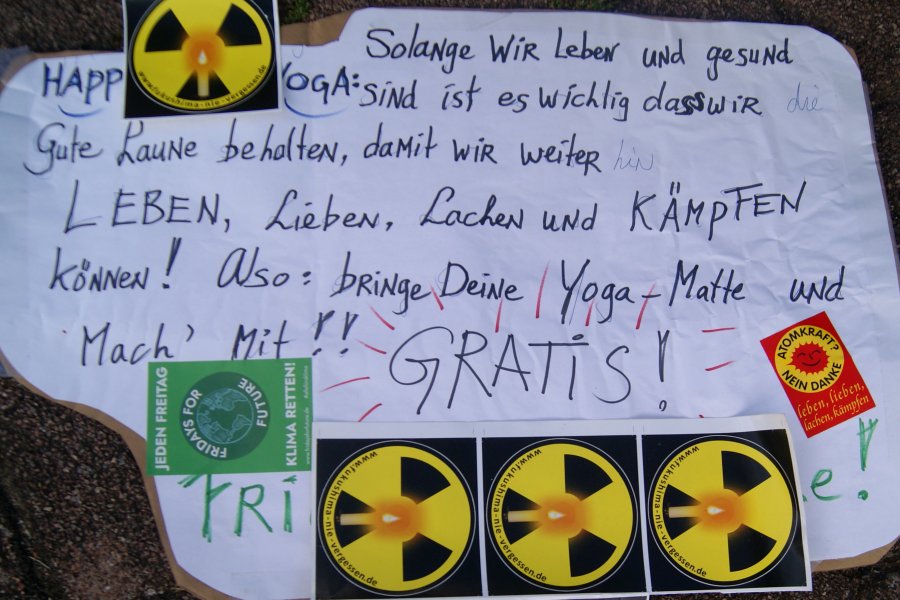 Solange wir leben und gesund
HAPP OGA: sind ist es wichtig dass wir die
Gute Laune behalten, damit wir weiter hin
LEBEN, Lieben, Lachen und KÄMPFEN
können! Also: bringe Deine Yoga-Matte und
Mach' Mit!!
GRATIS!
FRI e!
www.fukushima-nie-vergessen.de
JEDEN FREITAG
FRIDAYS FOR
FUTURE
KLIMA RETTEN!
ATOMKRAFT?
NEIN DANKE
leben, lieben,
lachen, kämpfen
www.fukushima-nie-vergessen.de
www.fukushima-nie-vergessen.de
www.fukushima-nie-vergessen.de